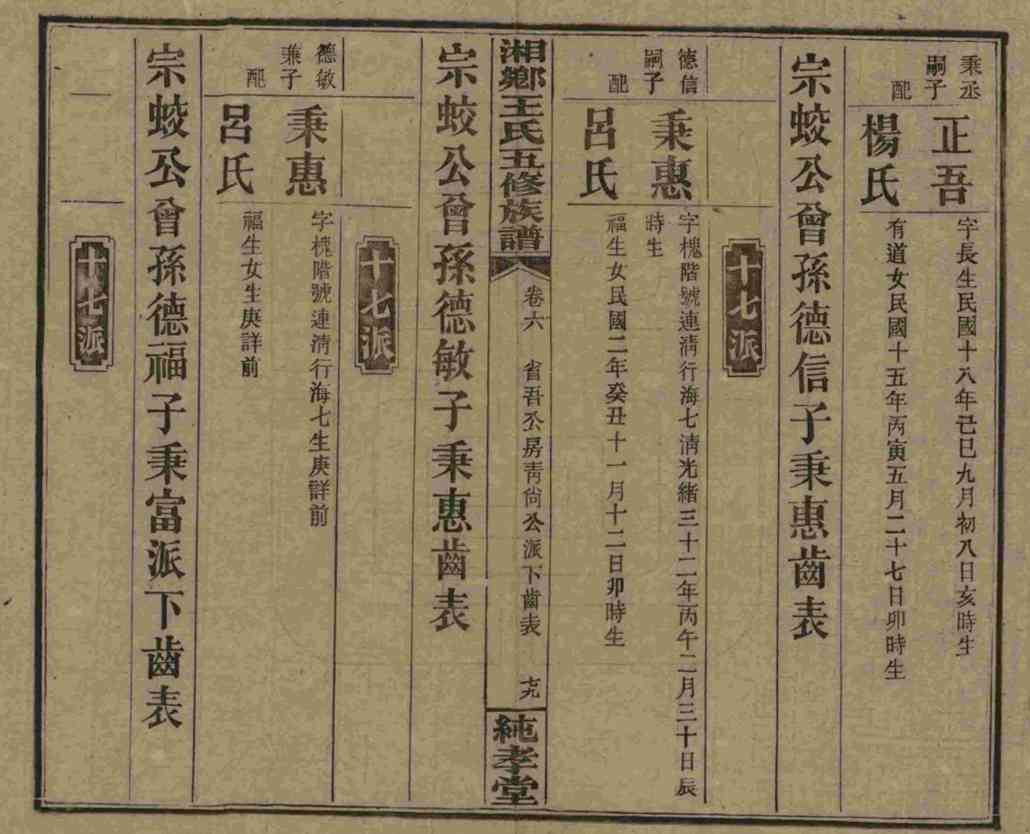 秉丞
嗣子
正吾
字長生民國十八年己巳九月初八日亥時生
配
楊氏
有道女民國十五年丙寅五月二十七日卯時生
宗蛟公曾孫德信子秉惠齒表
十七派
德信
嗣子
秉惠
字槐階號連淸行海七淸光緖三十二年丙午二月三十日辰
時生
配
呂氏
福生女民國二年癸丑十一月十二日卯時生
湘鄉王氏五修族譜
卷六
省吾公房靑尙公派下齒表
純孝堂
宗蛟公曾孫德敏子秉惠齒表
十七派
德敏
兼子
秉惠
字槐階號連淸行海七生庚詳前
配
呂氏
福生女生庚詳前
宗蛟公曾孫德福子秉富派下齒表
十七派